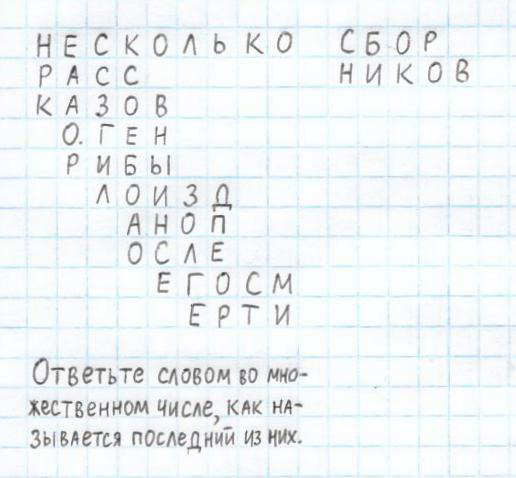 НЕСКОЛЬКО СБОР
РАСС НИКОВ
КАЗОВ
О.ГЕН
РИБЫ
ЛОИЗД
АНОП
ОСЛЕ
ЕГОСМ
ЕРТИ
Ответьте словом во мно-
жественном числе, как на-
зывается последний из них.